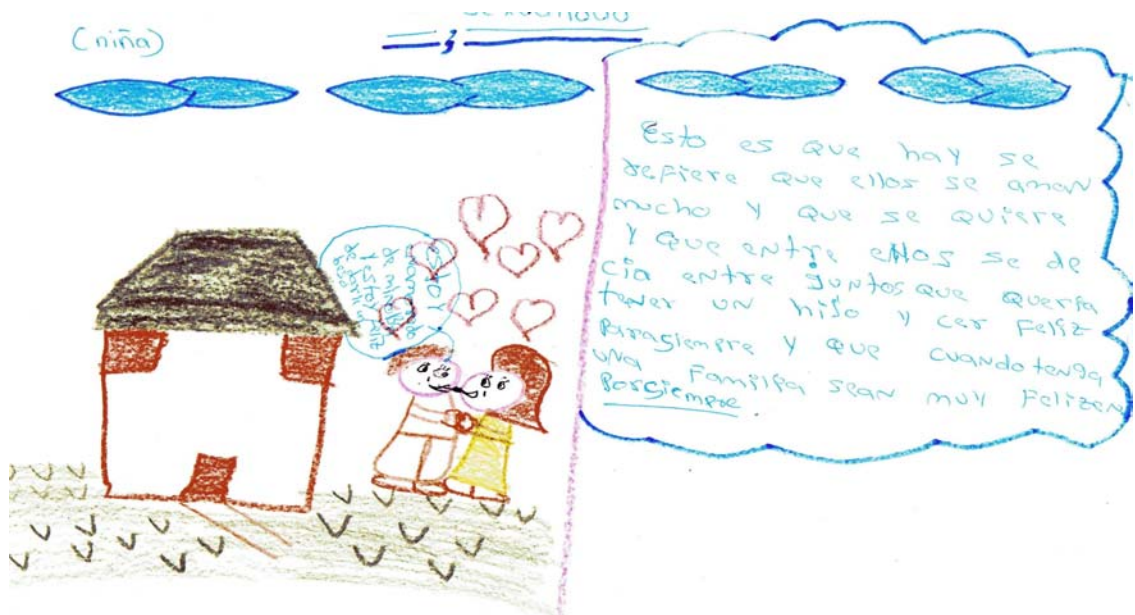 (niña)
esto Y
de mi
Y estoy feliz
de darle
beso
Esto es que hay se
refiere que ellos se aman
mucho y que se quiere
Y que entre ellos se de
cia entre juntos que queria
tener un hijo y cer Feliz
Parasiempre y que cuando tenga
una Familia sean muy Felizen
Porsiempre.